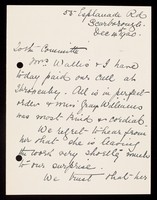 55 Esplanade Rd
Scarborough
Dec 14 1920.
Committee
Mrs Wallis & I have
to-day paid our call at
Throxenby. All is in perfect
order & Mrs Gray Williams
was most kind & cordial.
We regret to hear from
her that she is leaving
the work very shortly much
to our surprise.
We trust that her